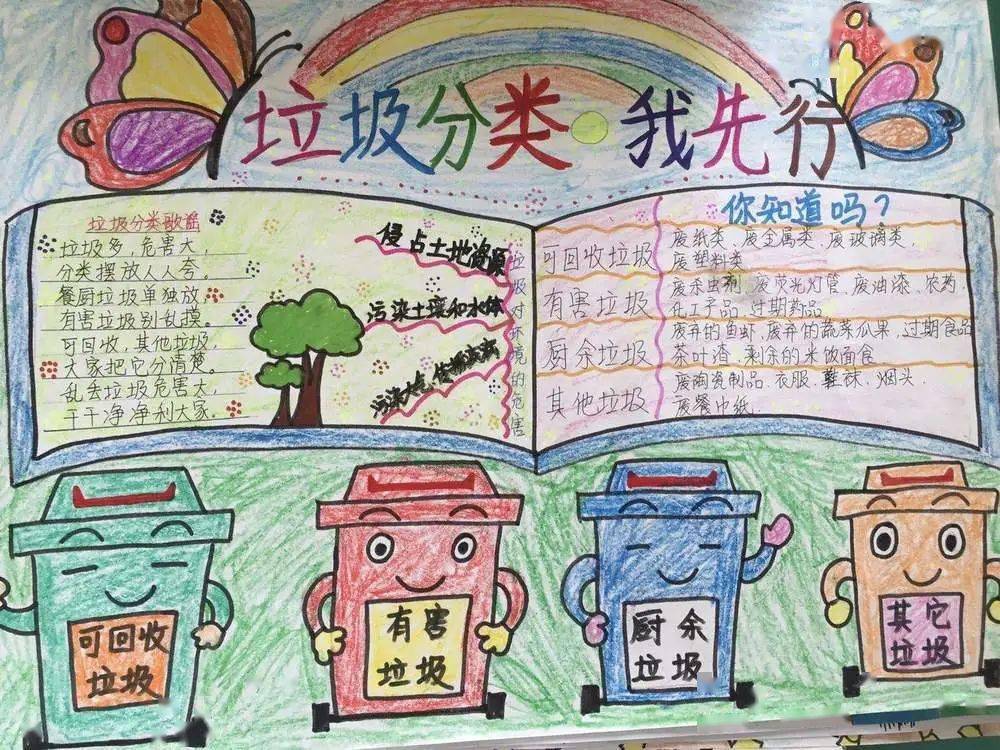 垃圾分类·我先行
垃圾分类歌谣
垃圾多,危害大,
分类摆放人人夸。
餐厨垃圾单独放,
有害垃圾别乱摸。
可回收,其他垃圾,
大家把它分清楚。
乱丢垃圾危害大,
干干净净利大家。
侵占土地资源
污染土壤和水体
污染大气,传播疾病
垃圾对环境的危害
你知道吗?
可回收垃圾
废纸类、废金属类、废玻璃类、
废塑料类
有害垃圾
废杀虫剂、废荧光灯管、废油漆、农药、
化工产品、过期药品
厨余垃圾
废弃的鱼虾、废弃的蔬菜瓜果、过期食品
茶叶渣、剩余的米饭面食
其他垃圾
废陶瓷制品、衣服、鞋袜、烟头、
废餐巾纸
可回收
垃圾
有害
垃圾
厨余
垃圾
其它
垃圾